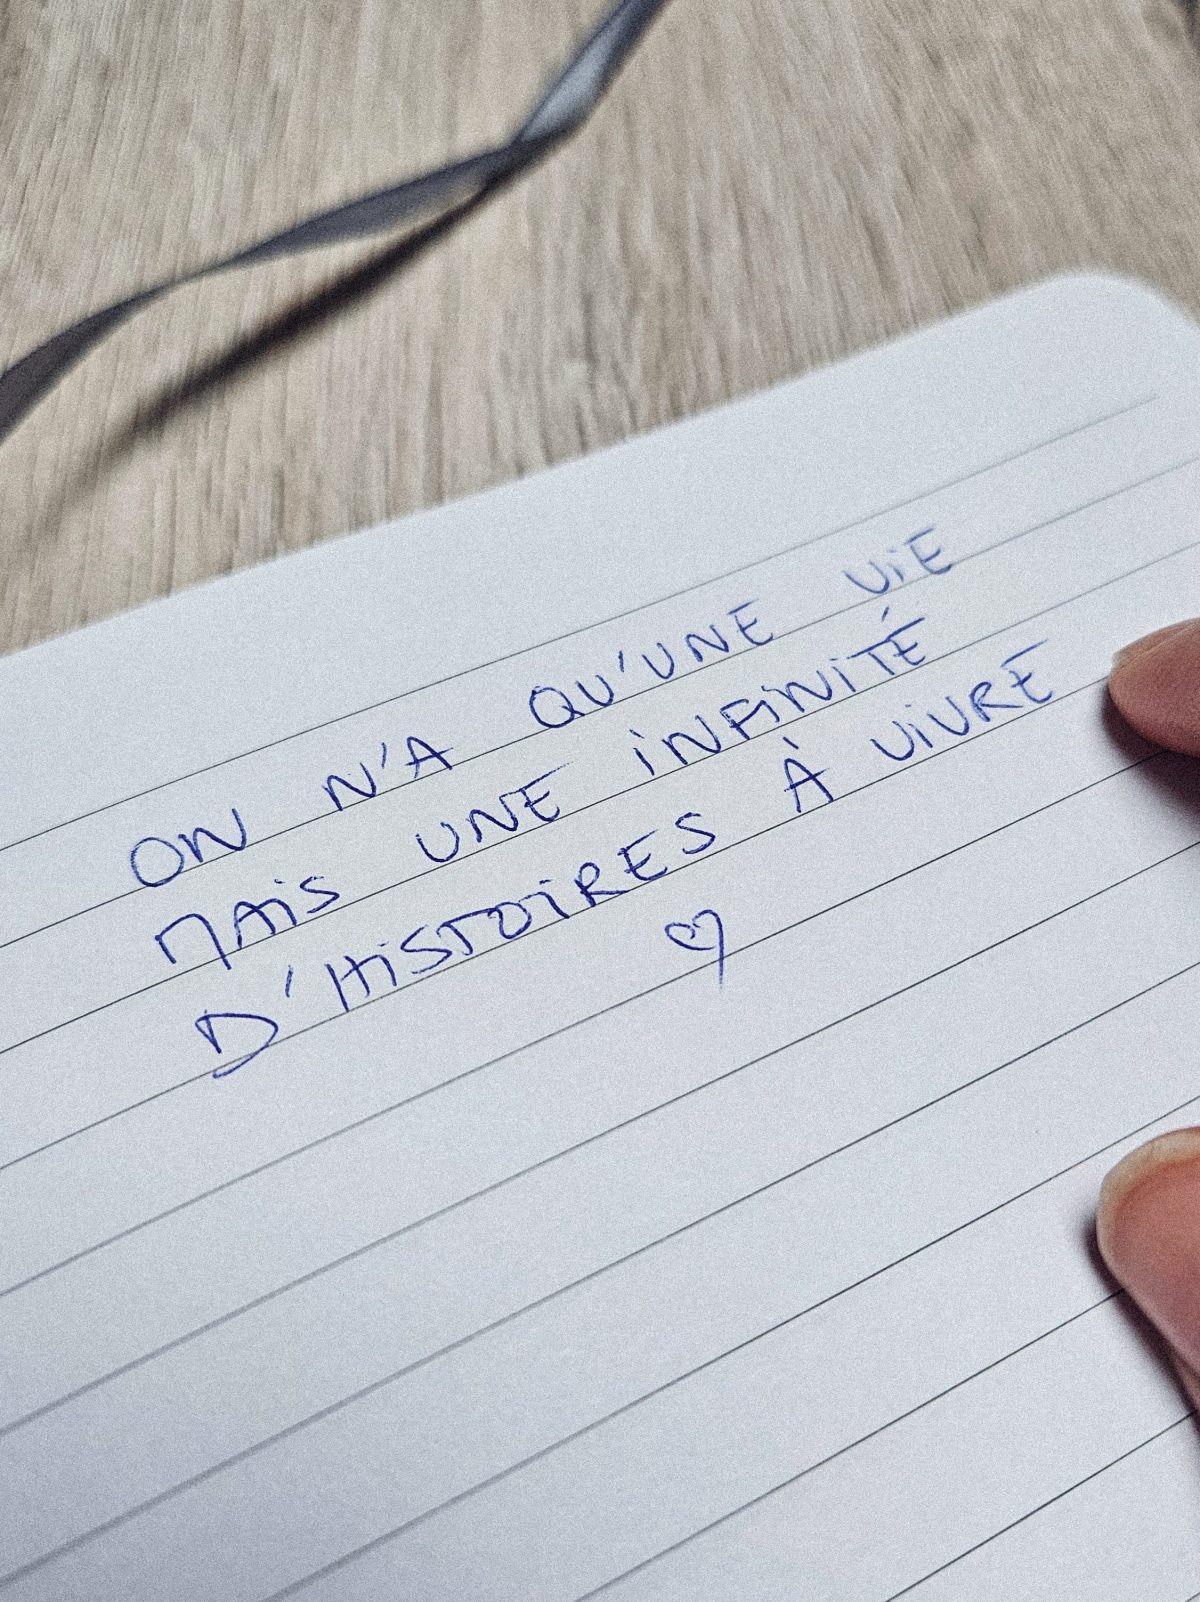 ON N'A QU'UNE ViE
MAiS UNE iNFiNiTÉ
D'HiSTOiRES À ViVRE